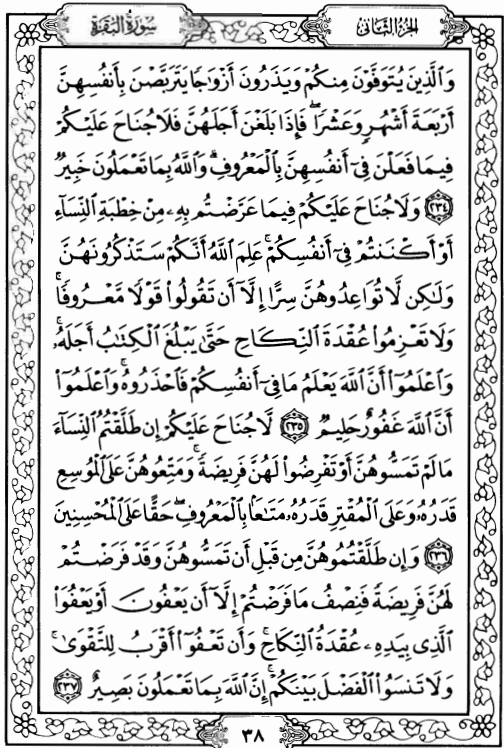 الجزء الثاني
سورة البقرة
وَٱلَّذِينَ يُتَوَفَّوْنَ مِنكُمْ وَيَذَرُونَ أَزْوَٰجًا يَتَرَبَّصْنَ بِأَنفُسِهِنَّ
أَرْبَعَةَ أَشْهُرٍ وَعَشْرًا ۖ فَإِذَا بَلَغْنَ أَجَلَهُنَّ فَلَا جُنَاحَ عَلَيْكُمْ
فِيمَا فَعَلْنَ فِىٓ أَنفُسِهِنَّ بِٱلْمَعْرُوفِ ۗ وَٱللَّهُ بِمَا تَعْمَلُونَ خَبِيرٌ
﴿٢٣٤﴾ وَلَا جُنَاحَ عَلَيْكُمْ فِيمَا عَرَّضْتُم بِهِۦ مِنْ خِطْبَةِ ٱلنِّسَآءِ
أَوْ أَكْنَنتُمْ فِىٓ أَنفُسِكُمْ ۚ عَلِمَ ٱللَّهُ أَنَّكُمْ سَتَذْكُرُونَهُنَّ
وَلَٰكِن لَّا تُوَاعِدُوهُنَّ سِرًّا إِلَّآ أَن تَقُولُوا۟ قَوْلًا مَّعْرُوفًا ۚ
وَلَا تَعْزِمُوا۟ عُقْدَةَ ٱلنِّكَاحِ حَتَّىٰ يَبْلُغَ ٱلْكِتَٰبُ أَجَلَهُۥ ۚ
وَٱعْلَمُوٓا۟ أَنَّ ٱللَّهَ يَعْلَمُ مَا فِىٓ أَنفُسِكُمْ فَٱحْذَرُوهُ ۚ وَٱعْلَمُوٓا۟
أَنَّ ٱللَّهَ غَفُورٌ حَلِيمٌ ﴿٢٣٥﴾ لَّا جُنَاحَ عَلَيْكُمْ إِن طَلَّقْتُمُ ٱلنِّسَآءَ
مَا لَمْ تَمَسُّوهُنَّ أَوْ تَفْرِضُوا۟ لَهُنَّ فَرِيضَةً ۚ وَمَتِّعُوهُنَّ عَلَى ٱلْمُوسِعِ
قَدَرُهُۥ وَعَلَى ٱلْمُقْتِرِ قَدَرُهُۥ مَتَٰعًۢا بِٱلْمَعْرُوفِ ۖ حَقًّا عَلَى ٱلْمُحْسِنِينَ
﴿٢٣٦﴾ وَإِن طَلَّقْتُمُوهُنَّ مِن قَبْلِ أَن تَمَسُّوهُنَّ وَقَدْ فَرَضْتُمْ
لَهُنَّ فَرِيضَةً فَنِصْفُ مَا فَرَضْتُمْ إِلَّآ أَن يَعْفُونَ أَوْ يَعْفُوَا۟
ٱلَّذِى بِيَدِهِۦ عُقْدَةُ ٱلنِّكَاحِ ۚ وَأَن تَعْفُوٓا۟ أَقْرَبُ لِلتَّقْوَىٰ ۚ
وَلَا تَنسَوُا۟ ٱلْفَضْلَ بَيْنَكُمْ ۚ إِنَّ ٱللَّهَ بِمَا تَعْمَلُونَ بَصِيرٌ ﴿٢٣٧﴾
٣٨